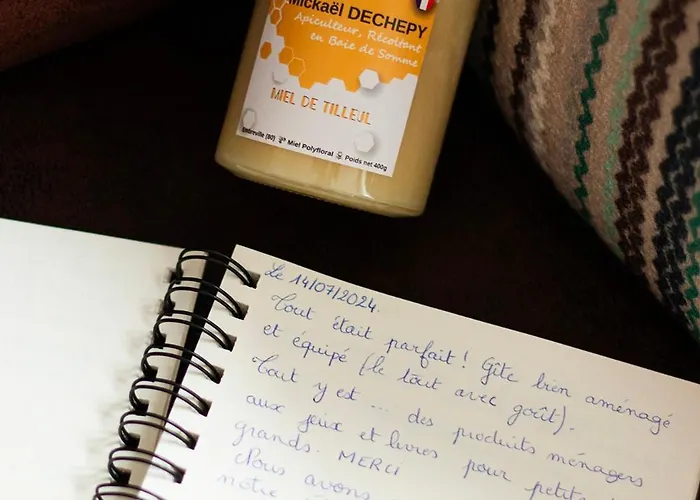 Mickaël DECHEPY
Apiculteur, Récoltant
en Baie de Somme
MIEL DE TILLEUL
(80) Miel Polyfloral Poids net 400g
Le 14/07/2024.
Tout était parfait! Gîte bien aménagé
et équipé (le tout avec goût).
Tout y est ... des produits ménagers
aux jeux et livres pour petits
grands. MERCI
Nous avons
notre